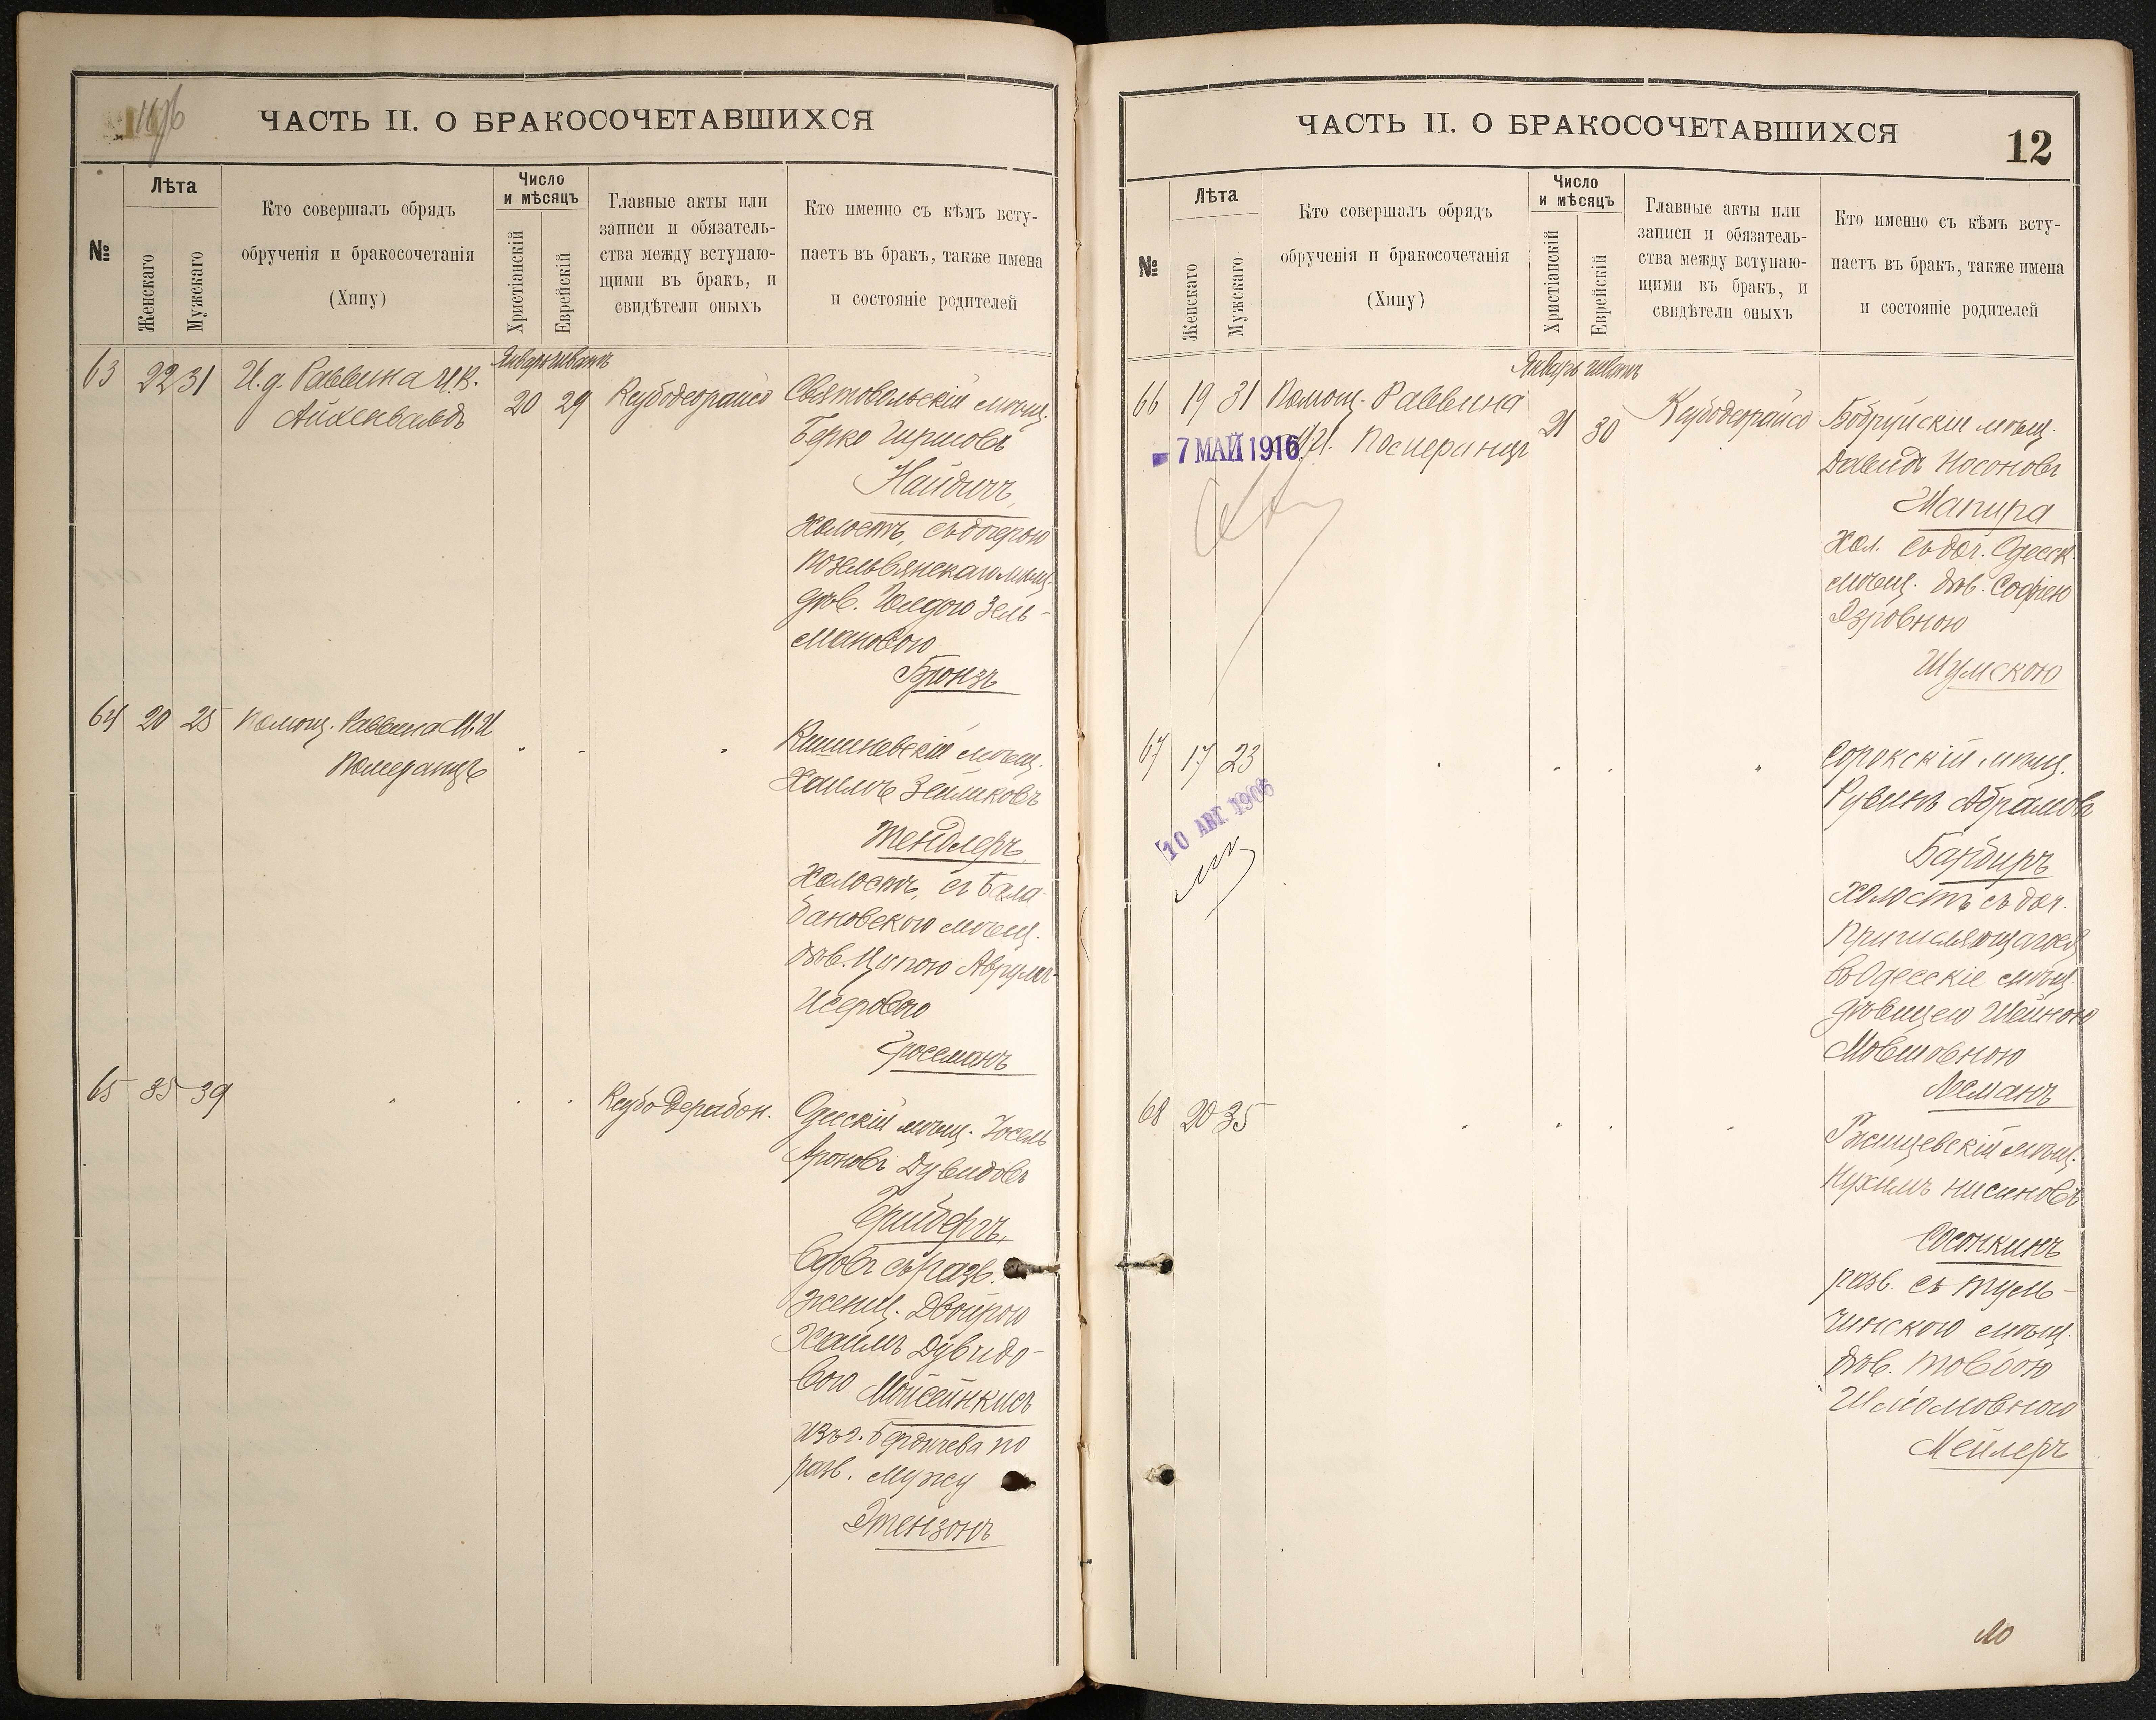 ЧАСТЬ II. О БРАКОСОЧЕТАВШИХСЯ
№
Лѣта
Женскаго
Мужскаго
Кто совершалъ обрядъ
обрученія и бракосочетанія
(Хипу)
Число
и мѣсяцъ
Христіанскій
Еврейскій
Главные акты или
записи и обязатель-
ства между вступаю-
щими въ бракъ, и
свидѣтели оныхъ
Кто именно съ кѣмъ всту-
паетъ въ бракъ, также имена
и состояніе родителей
63 22 31
И.д. Раввина И.К.
Айхенвальдъ
Январь шватъ
20 29
Ксубодеорайсо
мѣщ.
Берко Гиршовъ
Найдичъ,
холостъ, съ дочерью
мѣщ.
дѣв. Зель-
мановою
Бронзъ
64 20 25
Помощ. Раввина М.И
Померанцъ
Кишиневскій мѣщ.
Хаимъ Зейликовъ
Тендлеръ,
холостъ, съ Бала-
бановскою мѣщ.
дѣв. Ципою Аврумъ-
Исеровою
Гроссманъ
65 35 39
Ксубо Дерабон.
Одесскій мѣщ. Іосель
Ароновъ Дувидовъ
вдовъ съ разв.
женщ. Двойрою
Хаимъ Дувидо-
вою Мойсейнкисъ
изъ г. Бердичева по
разв. мужу
Этензонъ
ЧАСТЬ II. О БРАКОСОЧЕТАВШИХСЯ
12
№
Лѣта
Женскаго
Мужскаго
Кто совершалъ обрядъ
обрученія и бракосочетанія
(Хипу)
Число
и мѣсяцъ
Христіанскій
Еврейскій
Главные акты или
записи и обязатель-
ства между вступаю-
щими въ бракъ, и
свидѣтели оныхъ
Кто именно съ кѣмъ всту-
паетъ въ бракъ, также имена
и состояніе родителей
66 19 31
Помощ. Раввина
М.И. Померанцъ
7 МАЙ 1916
Январь шватъ
21 30
Ксубодеорайсо
Бобруйскій мѣщ.
Давидъ Носоновъ
Шапира
хол. съ доч. Одесск.
мѣщ. дѣв. Софіею
Азровною
Шумскою
67 17 23
10 АВГ. 1906
Сорокскій мѣщ.
Рувинъ Абрамовъ
Бандуръ
холостъ съ доч.
причисляющагося
въ Одесскіе мѣщ.
дѣвицею Шейною
Мовшовною
Леманъ
68 20 35
Ржищевскій мѣщ.
Нухимъ Нисиновъ
Сосонкинъ
разв. съ Туль-
чинскою мѣщ.
дѣв. Товбою
Шліомовною
Мейлеръ